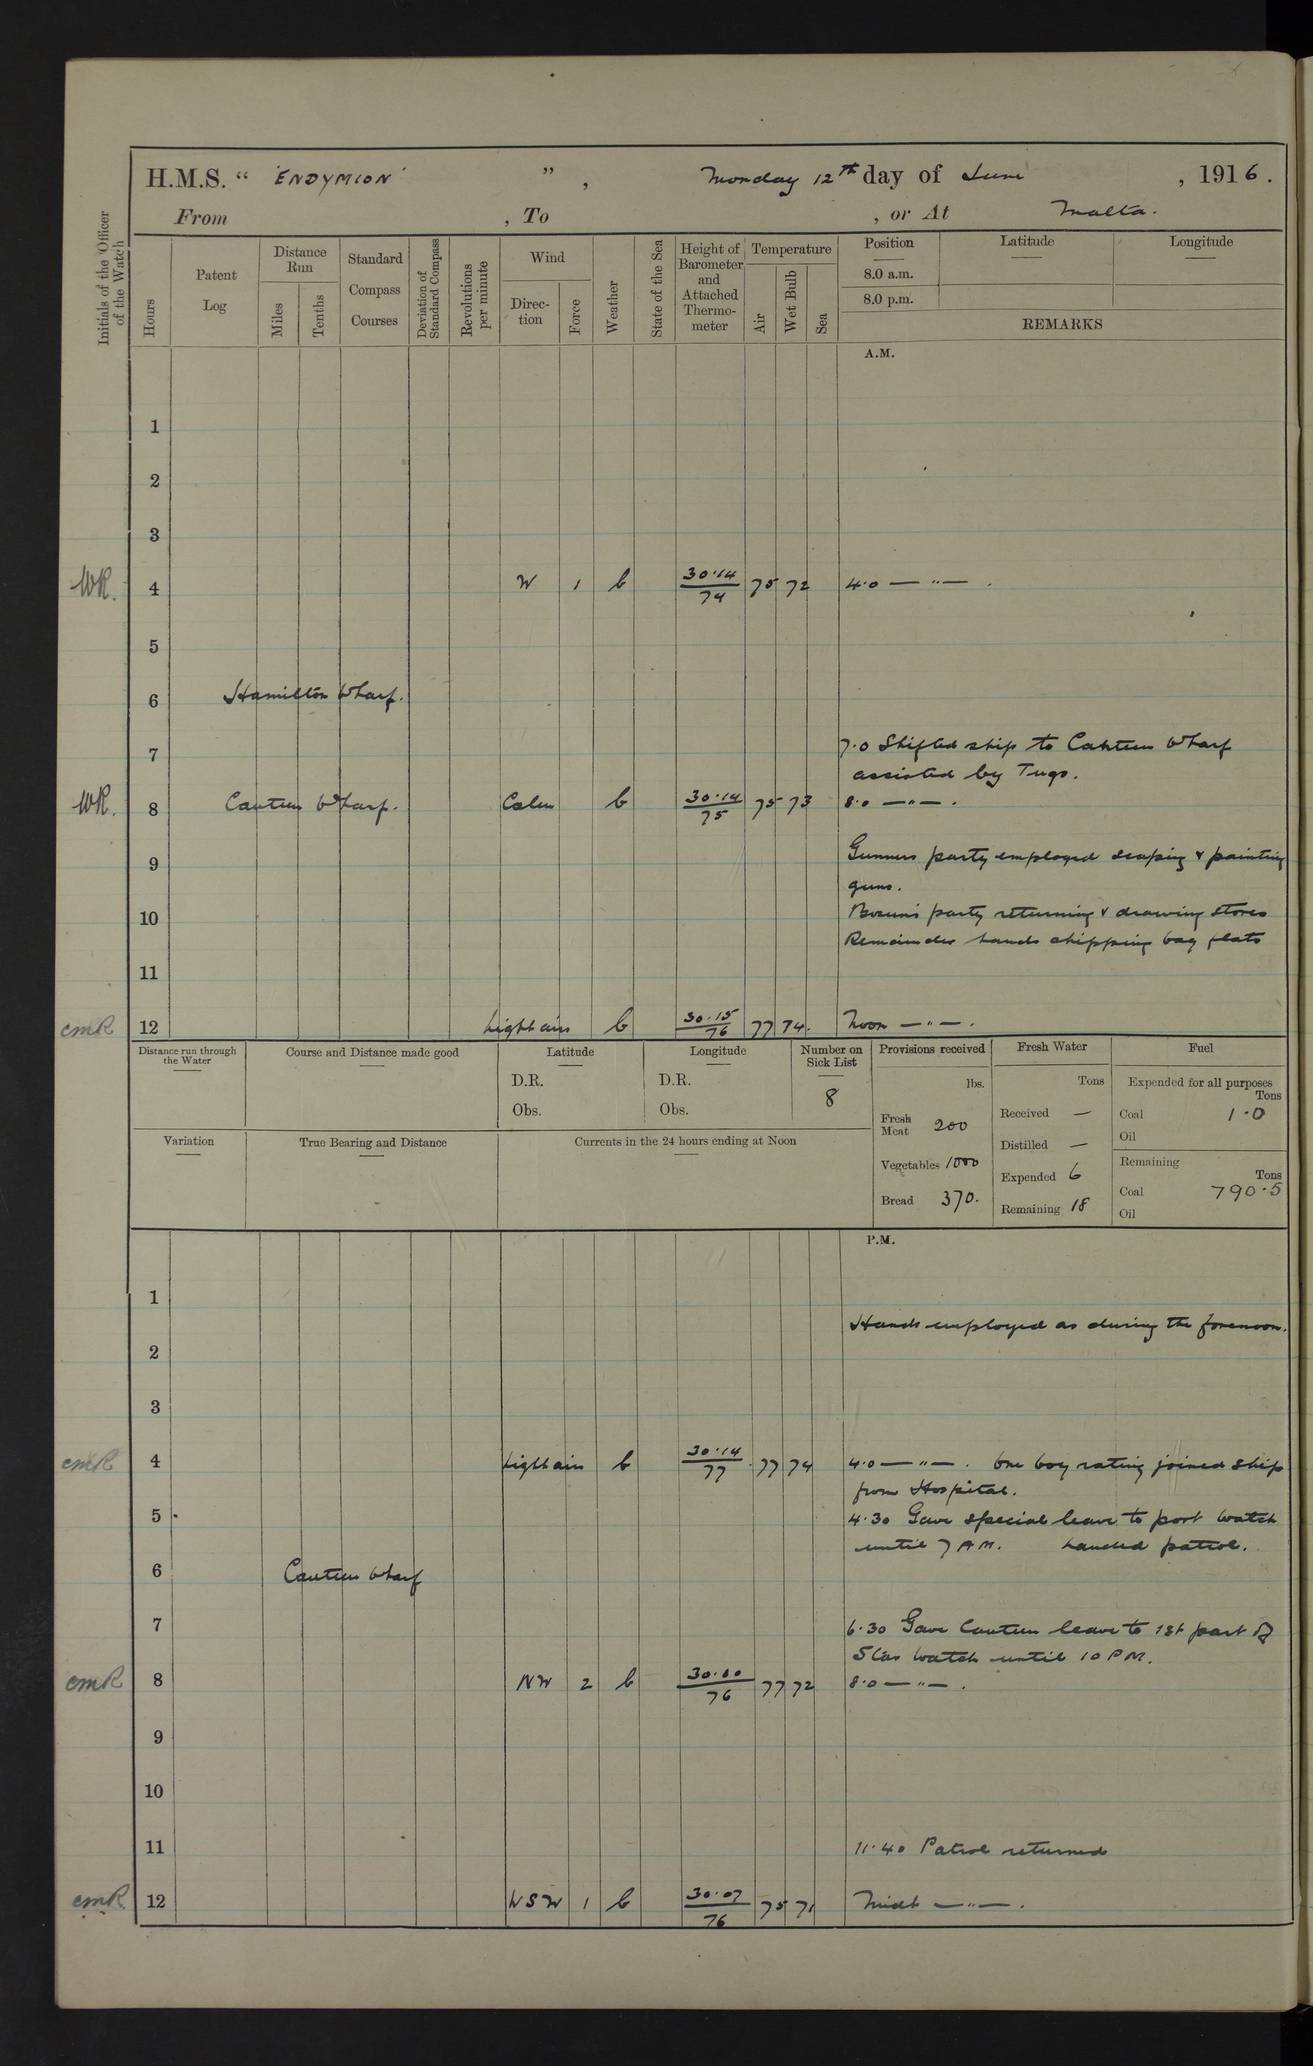 H.M.S. “ 'ENDYMION' ” , Monday 12th day of June , 1916.
From , To , or At Malta.
Initials of the Officer of the Watch
Hours
Patent Log
Distance Run
Miles
Tenths
Standard Compass Courses
Deviation of Standard Compass
Revolutions per minute
Wind
Direc- tion
Force
Weather
State of the Sea
Height of Barometer and Attached Thermo- meter
Temperature
Air
Wet Bulb
Sea
Position Latitude Longitude
8.0 a.m.
8.0 p.m.
REMARKS
A.M.
1
2
3
WR. 4 W 1 b 30.14/74 75 72 4.0 — " — .
5
6 Hamilton Wharf.
7 7.0 Shifted ship to Canteen Wharf
assisted by Tugs.
WR. 8 Canteen Wharf. Calm b 30.14/75 75 73 8.0 — " — .
9 Gunners party employed scaping & painting
guns.
10 Bosun's party returning & drawing stores
Remainder hands chipping bag flats
11
CMR 12 Light airs b 30.15/76 77 74. Noon — " — .
Distance run through the Water
Course and Distance made good
Latitude
D.R.
Obs.
Longitude
D.R.
Obs.
Number on Sick List
8
Provisions received
lbs.
Fresh Meat 200
Vegetables 1000
Bread 370.
Fresh Water
Tons
Received —
Distilled —
Expended 6
Remaining 18
Fuel
Expended for all purposes
Tons
Coal 1.0
Oil
Remaining
Tons
Coal 790.5
Oil
Variation
True Bearing and Distance
Currents in the 24 hours ending at Noon
P.M.
1
Hands employed as during the forenoon.
2
3
CMR 4 Light airs b 30.14/77 77 74 4.0 — " — . One boy rating joined ship
from Hospital.
5 4.30 Gave special leave to port watch
until 7 AM. Landed patrol.
6 Canteen Wharf
7 6.30 Gave Canteen leave to 1st part of
watch until 10 PM.
CMR 8 NW 2 b 30.10/76 77 72 8.0 — " — .
9
10
11 11.40 Patrol returned
CMR 12 WSW 1 b 30.07/76 75 71 Midt — " — .